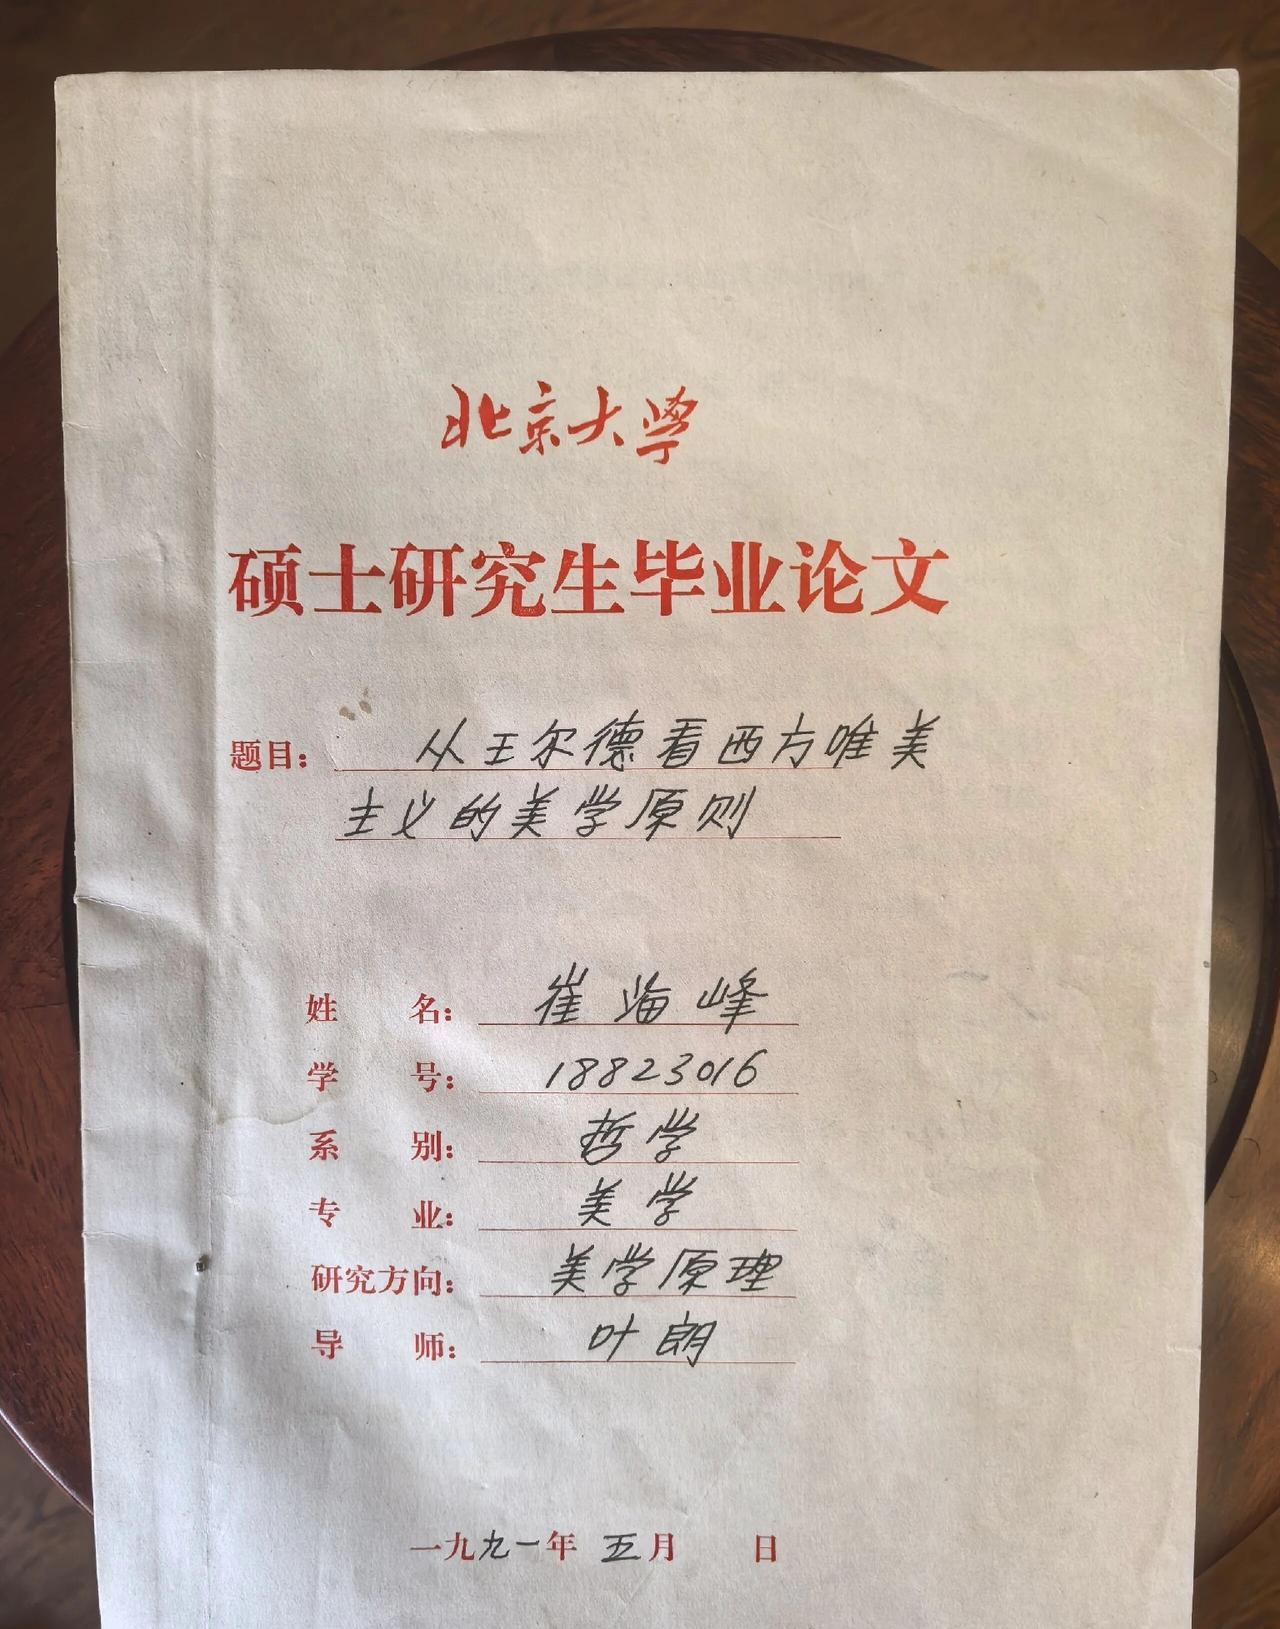 北京大学
硕士研究生毕业论文
题目：从王尔德看西方唯美
主义的美学原则
姓名：崔海峰
学号：18823016
系别：哲学
专业：美学
研究方向：美学原理
导师：叶朗
一九九一年五月 日